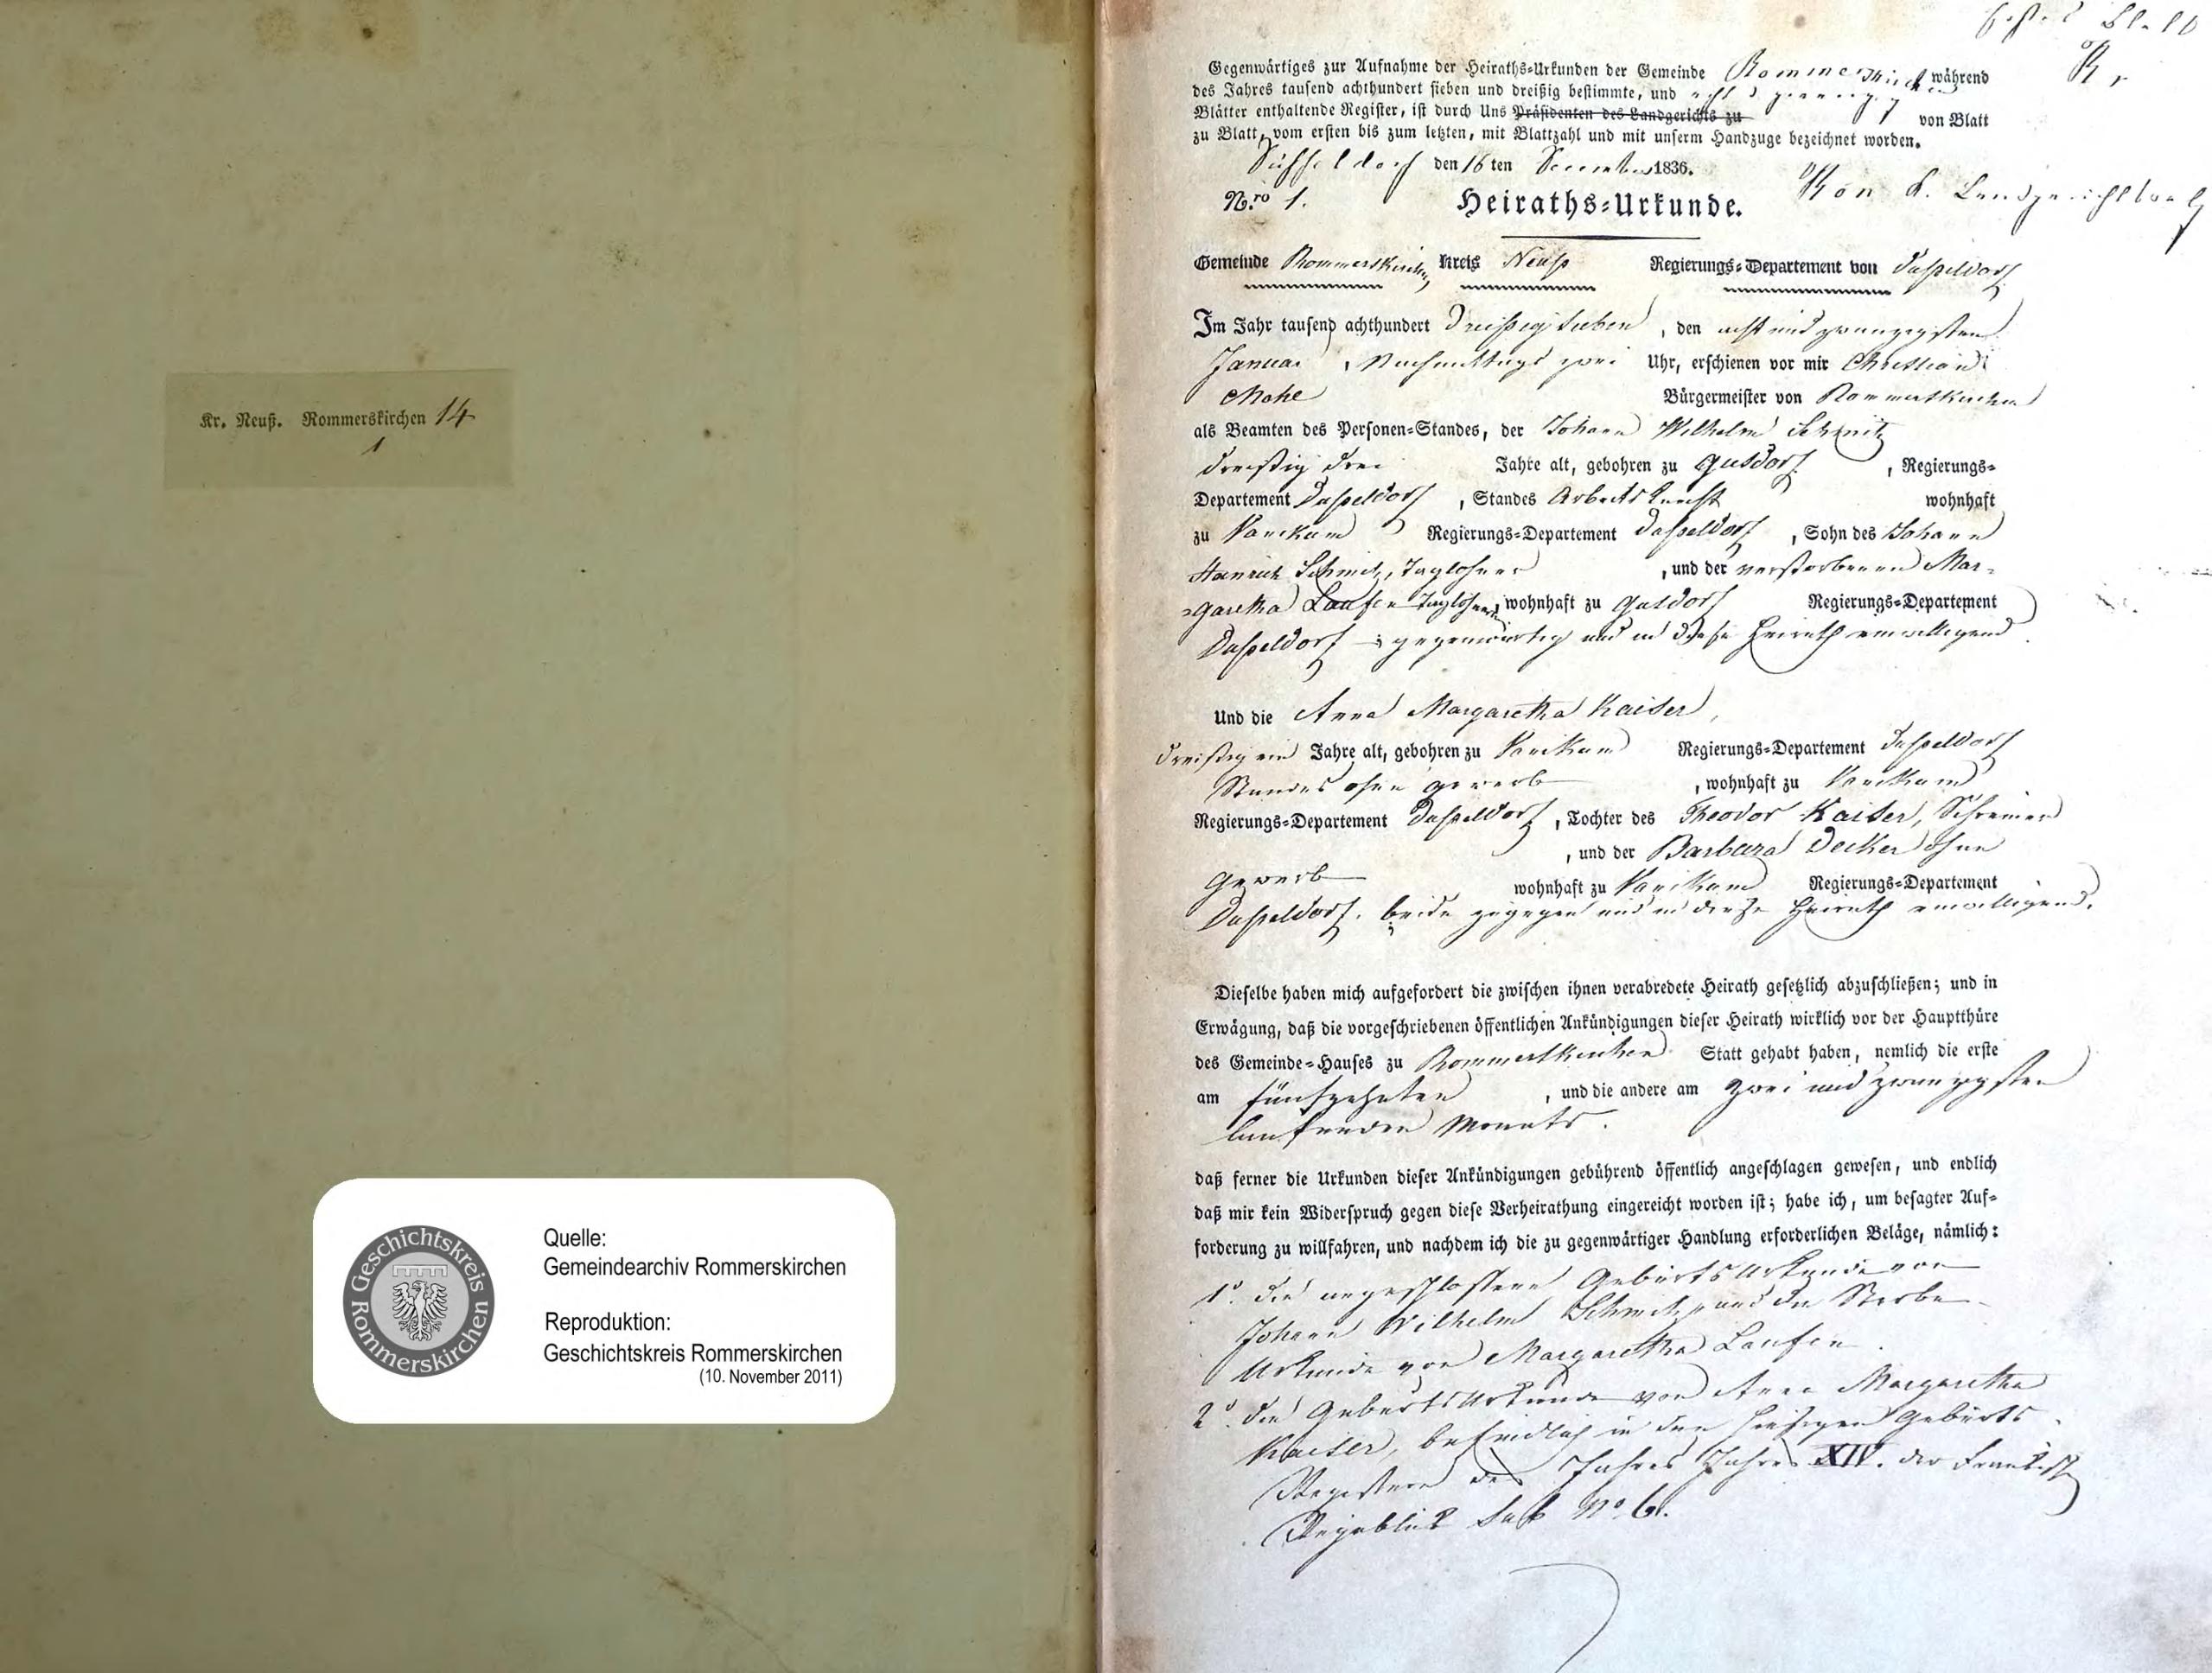 Kr. Neuß. Rommerskirchen 14
1
Quelle:
Gemeindearchiv Rommerskirchen
Reproduktion:
Geschichtskreis Rommerskirchen
(10. November 2011)
Geschichtskreis
Rommerskirchen
Erstes Blatt
R
Gegenwärtiges zur Aufnahme der Heiraths-Urkunden der Gemeinde Rommerskirchen während
des Jahres tausend achthundert sieben und dreißig bestimmte, und
Blätter enthaltende Register, ist durch Uns Präsidenten des Landgerichts zu von Blatt
zu Blatt, vom ersten bis zum letzten, mit Blattzahl und mit unserm Handzuge bezeichnet worden.
Düsseldorf den 16 ten December 1836.
Nro 1.
Heiraths-Urkunde.
Gemeinde Rommerskirchen Kreis Neuß Regierungs-Departement von Dusseldorf
Im Jahr tausend achthundert dreißig sieben, den acht und zwanzigsten
Januar, Nachmittags zwei Uhr, erschienen vor mir Christian
Mohe Bürgermeister von Rommerskirchen
als Beamten des Personen-Standes, der Johann Wilhelm Schmitz
dreißig drei Jahre alt, gebohren zu Gusdorf, Regierungs-
Departement Dusseldorf, Standes Arbeitsknecht wohnhaft
zu Vanikum Regierungs-Departement Dusseldorf, Sohn des Johann
Heinrich Schmitz, Taglöhner, und der verstorbenen Mar-
garetha Laufen Taglöhner, wohnhaft zu Gusdorf Regierungs-Departement
Dusseldorf gegenwärtig und in diese Heirath einwilligend
Und die Anna Margaretha Kaiser,
dreißig ein Jahre alt, gebohren zu Vanikum Regierungs-Departement Dusseldorf
Standes ohne Gewerb, wohnhaft zu Vanikum
Regierungs-Departement Dusseldorf, Tochter des Theodor Kaiser, Schreiner
, und der Barbara Decker ohne
Gewerb wohnhaft zu Vanikum Regierungs-Departement
Dusseldorf, beide zugegen und in diese Heirath einwilligend.
Dieselbe haben mich aufgefordert die zwischen ihnen verabredete Heirath gesetzlich abzuschließen; und in
Erwägung, daß die vorgeschriebenen öffentlichen Ankündigungen dieser Heirath wirklich vor der Hauptthüre
des Gemeinde-Hauses zu Rommerskirchen Statt gehabt haben, nemlich die erste
am fünfzehnten, und die andere am zwei und zwanzigsten
laufenden Monats.
daß ferner die Urkunden dieser Ankündigungen gebührend öffentlich angeschlagen gewesen, und endlich
daß mir kein Widerspruch gegen diese Verheirathung eingereicht worden ist; habe ich, um besagter Auf-
forderung zu willfahren, und nachdem ich die zu gegenwärtiger Handlung erforderlichen Beläge, nämlich:
1° die angeschlossene Geburts Urkunde von
Johann Wilhelm Schmitz und die Sterbe
Urkunde von Margaretha Laufen.
2° die Geburts Urkunde von Anna Margaretha
Kaiser, befindlich in den hiesigen Geburts
Registern des Jahres Jahres XIV. der Französch
Republik sub No 6.